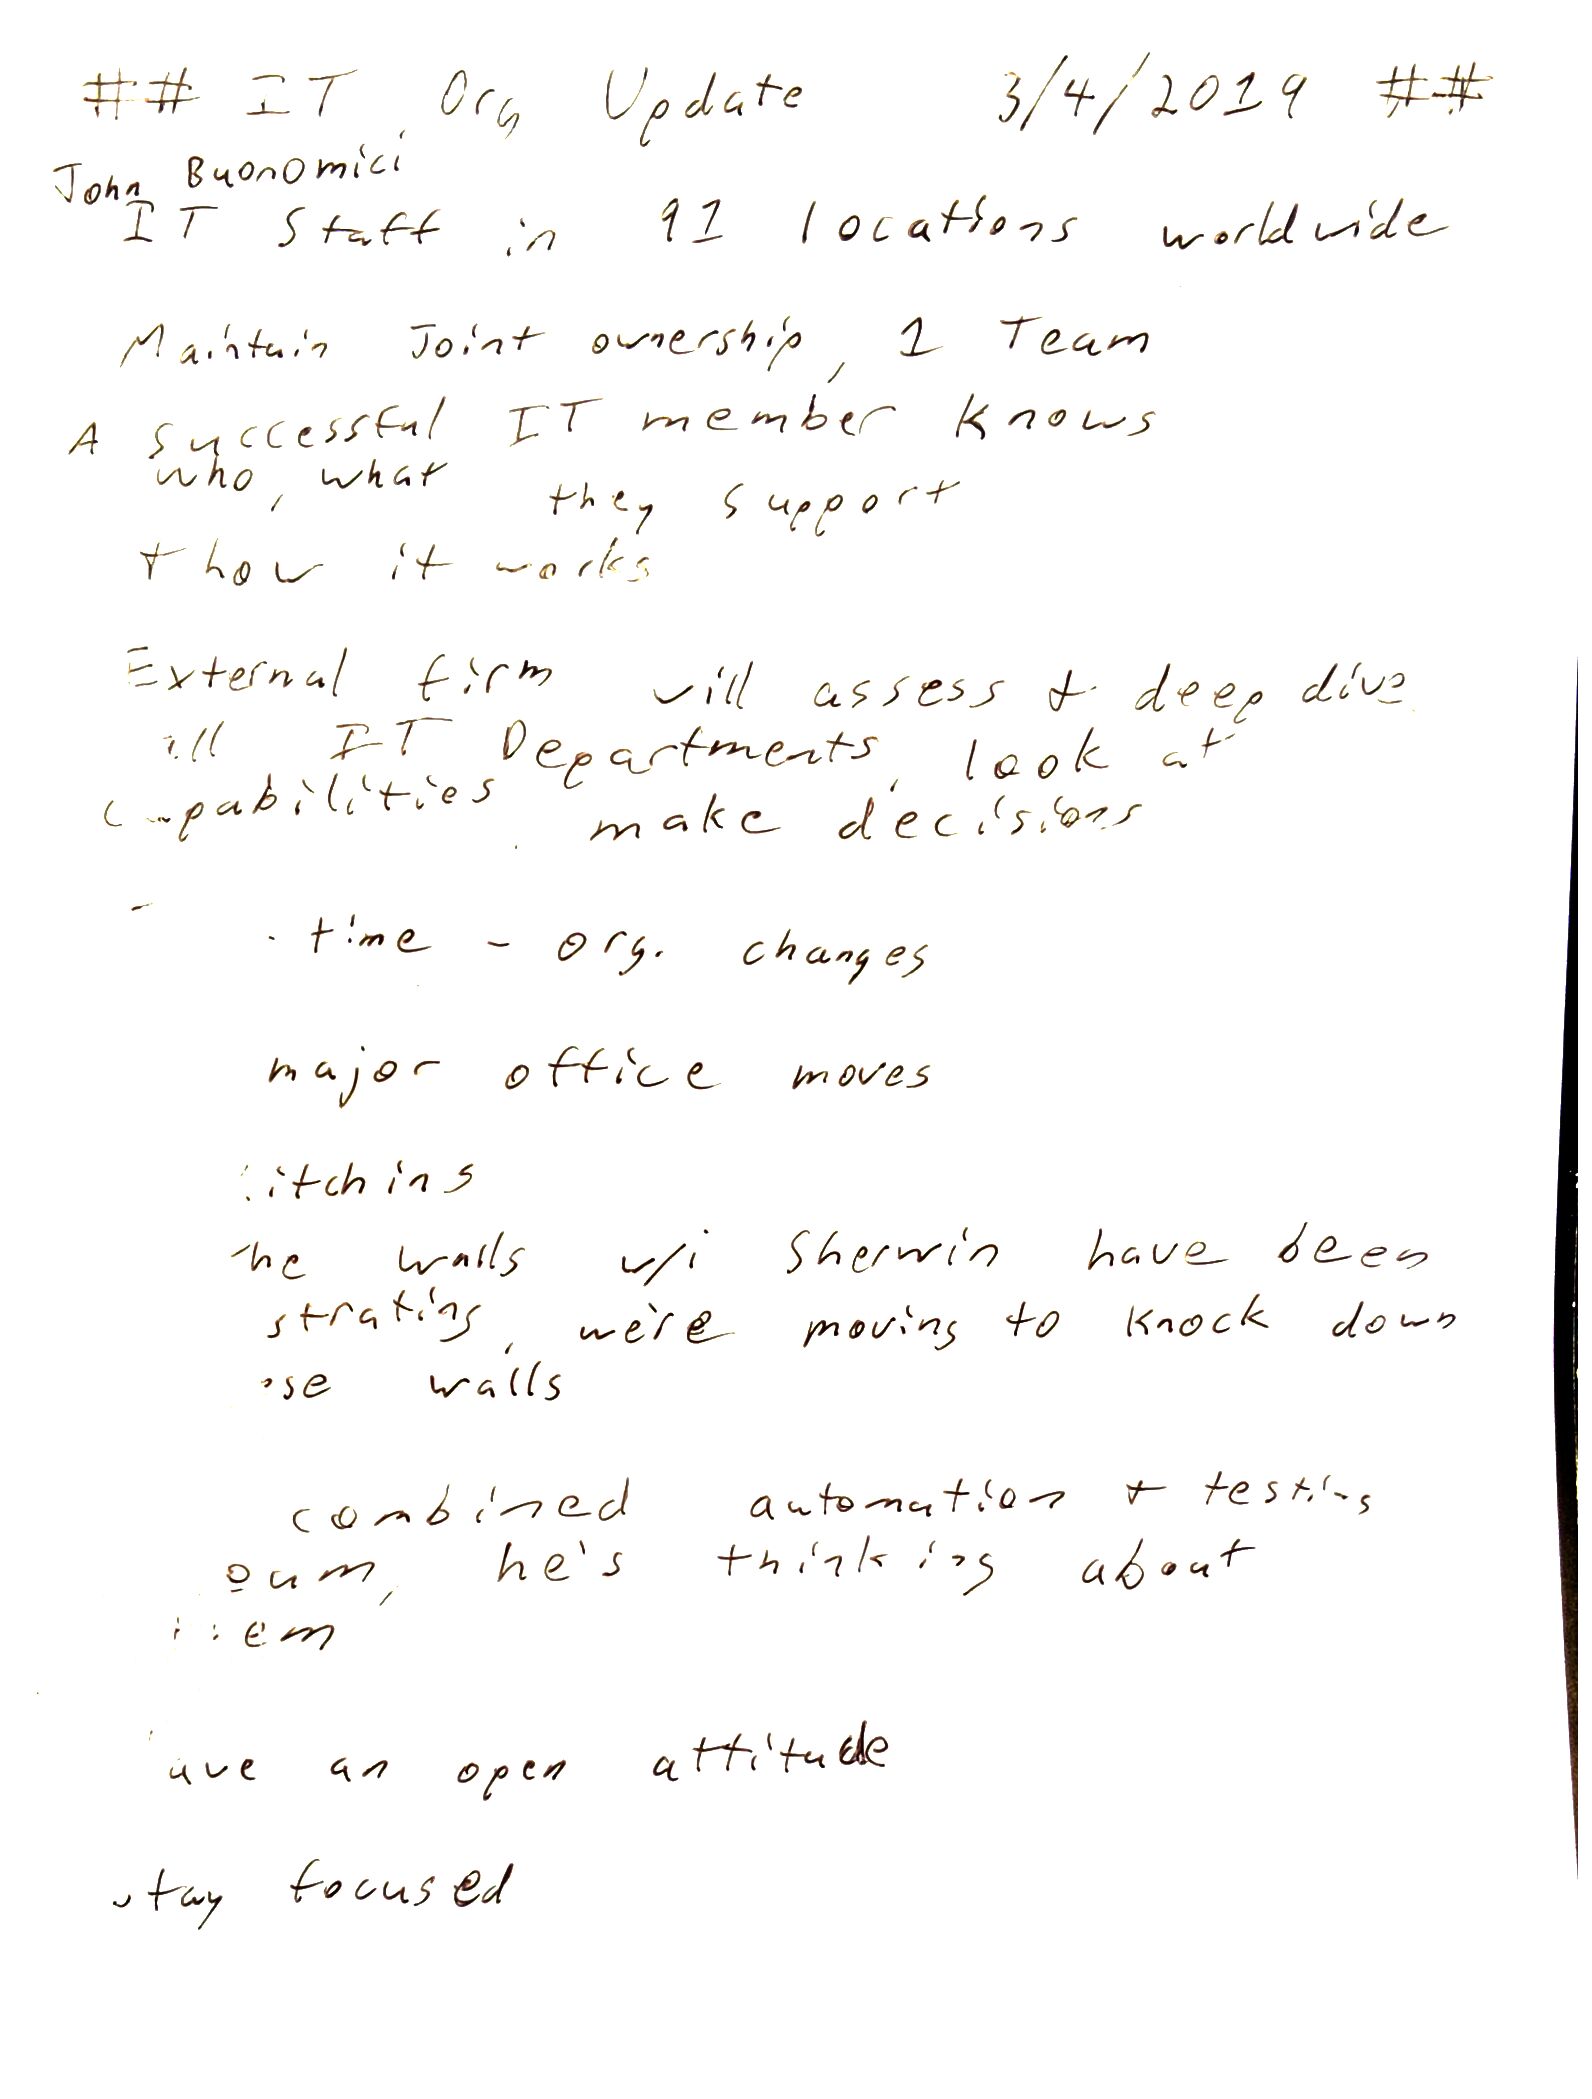 ## IT Org Update 3/4/2019 ##
John Buonomici
IT Staff in 91 locations worldwide
Maintain Joint ownership, 1 Team
A successful IT member knows
who, what they support
+ how it works
External firm will assess + deep dive
all IT Departments, look at
capabilities make decisions
time - org. changes
major office moves
walls w/i Sherwin have been
we're moving to knock down
walls
combined automation + testing
he's thinking about
an open attitude
stay focused